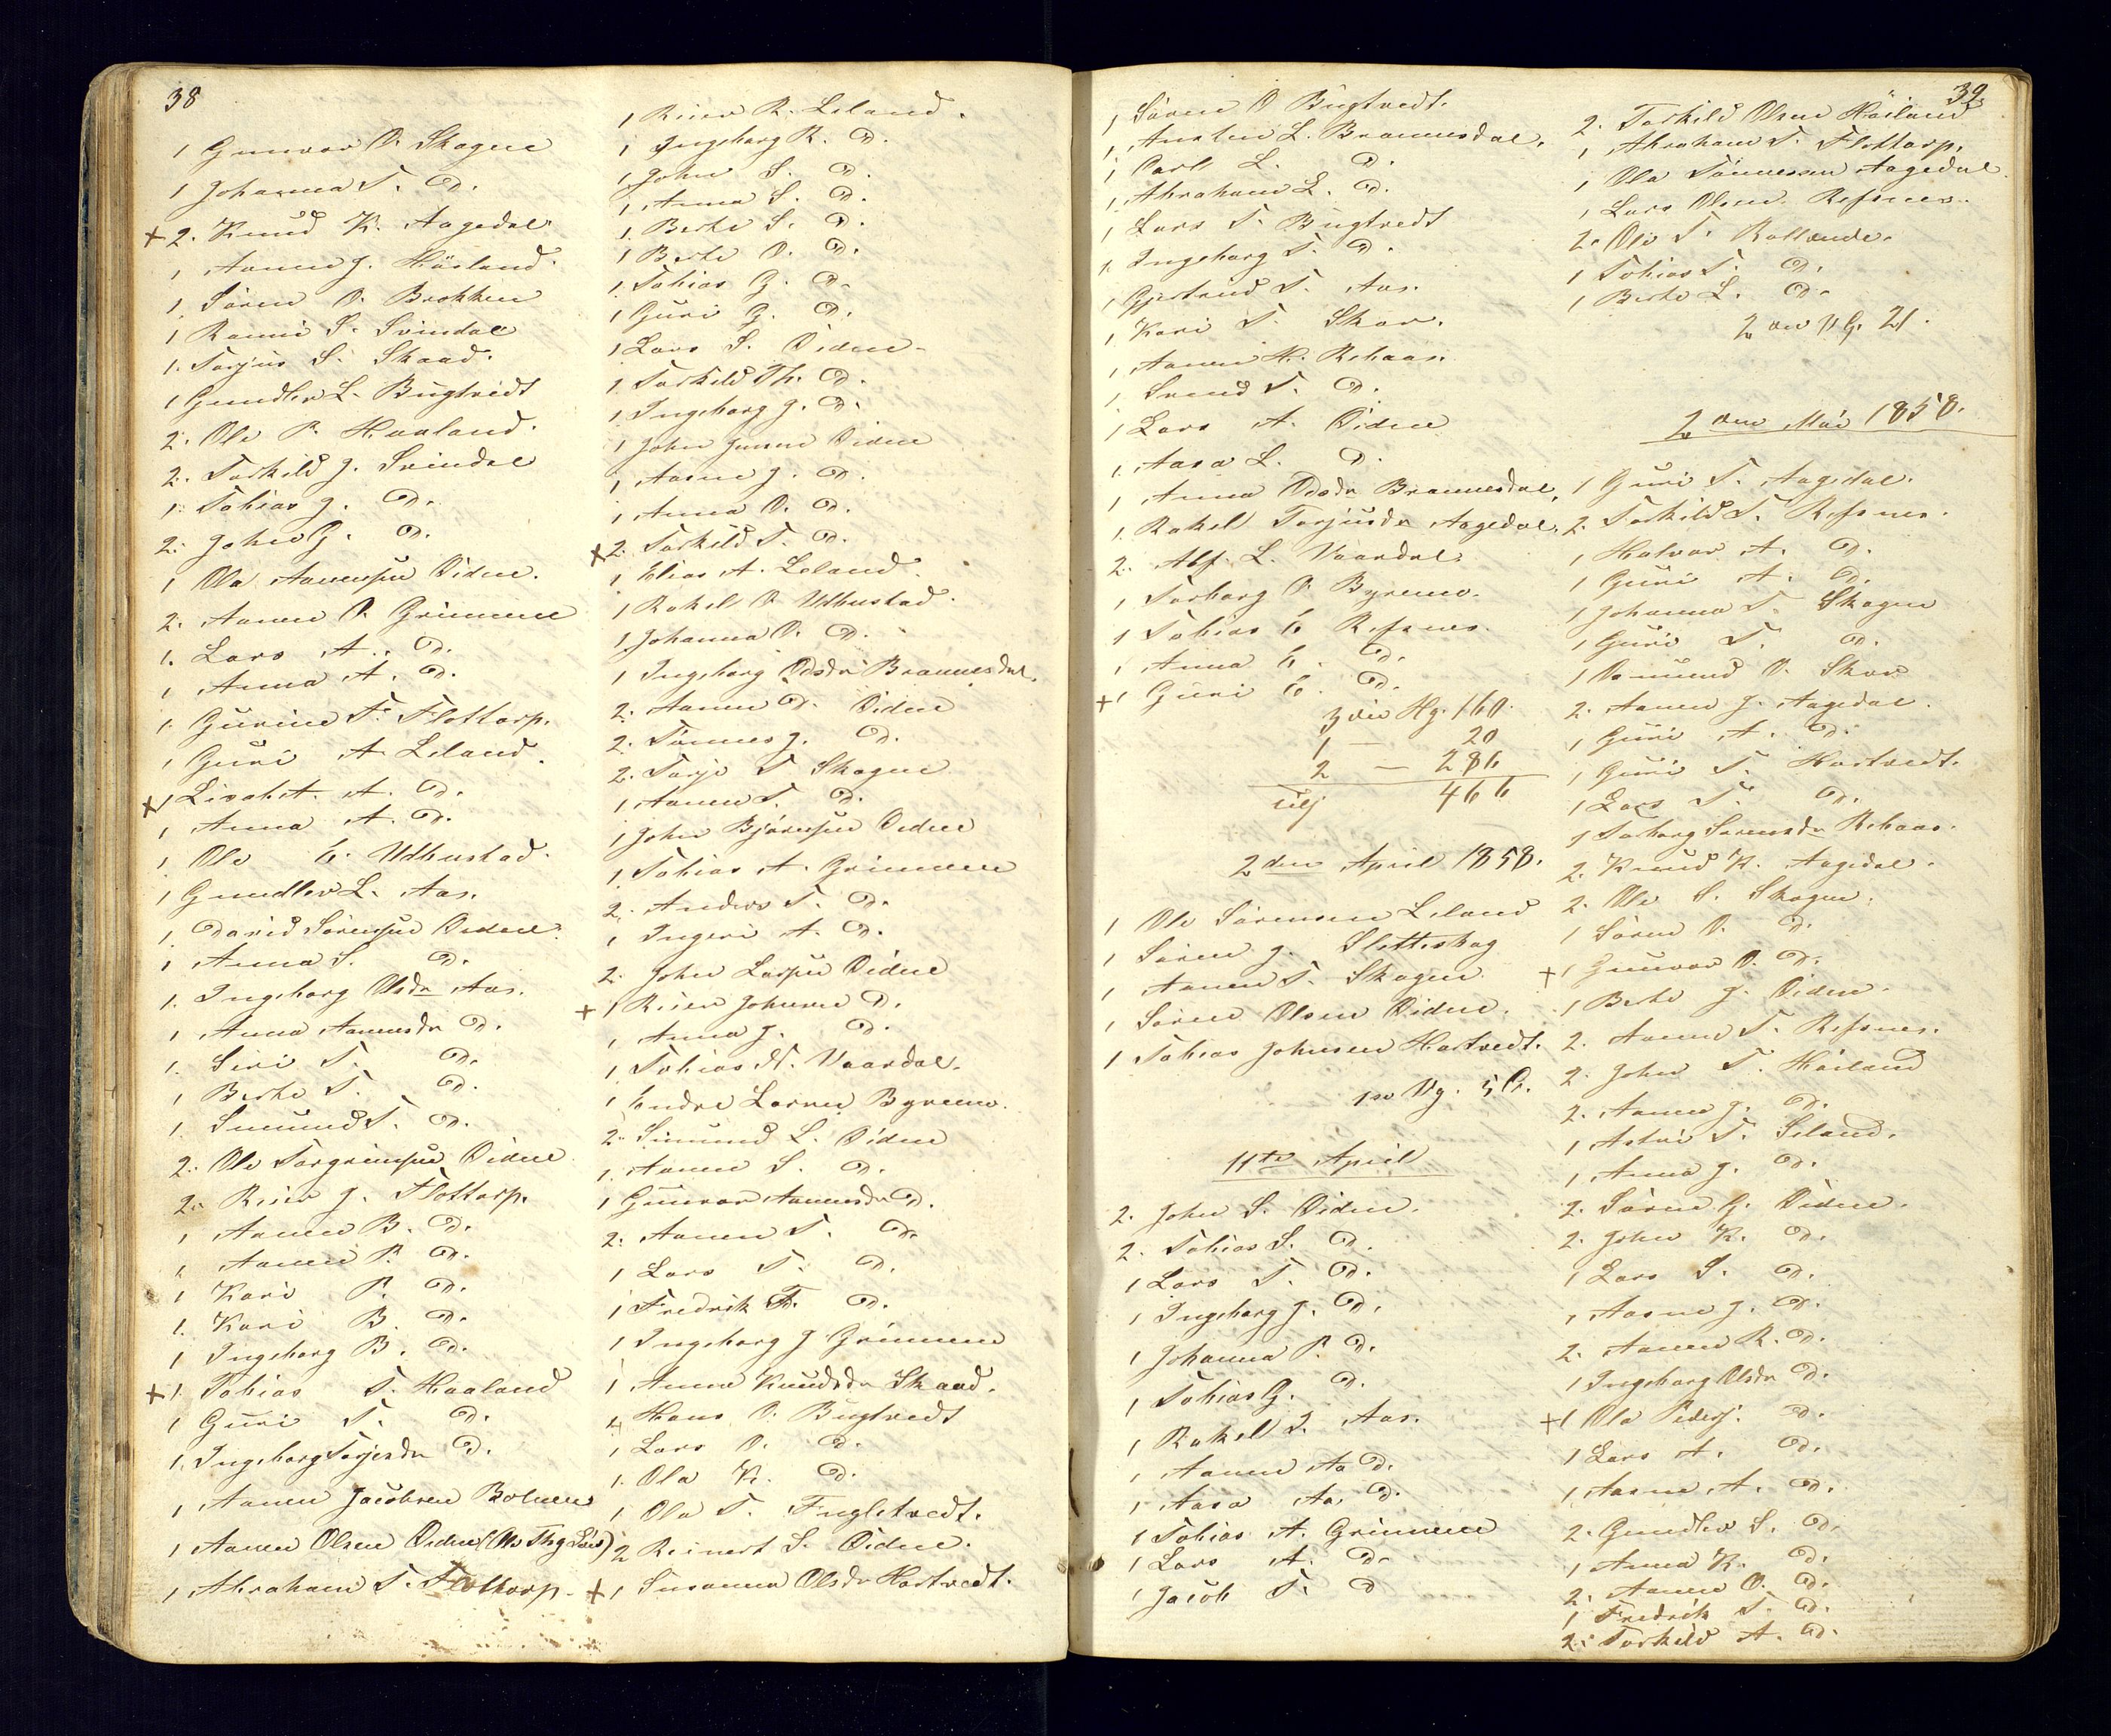 38
1 Gunvor O. Skogen
1 Johanna T. D.
+ 2. Knud K. Aagedal
1 Aanen J. Höiland.
1. Sören O. Brokken
1 Ranni S. Svindal
1. Torjus S. Skaad.
1 Gundlev L. Bügtvedt
2. Ole P. Haaland.
2. Torkild J. Svindal
1. Tobias J. D.
2. John G. D.
1 Ola Aanensen Öidne.
2. Aanen O. Grimmene
1. Lars A. D.
1 Anna A. D.
1. Gurine T. Flottorp.
1 Guri A. Leland.
+ 1 Lisabet A. D.
1 Anna A. D.
1. Ole E. Udhustad.
1 Gundlev L. Aas.
1. David Sörensen Öidne.
1 Anna S. D.
1. Ingeborg Olsdr Aas.
1 Anna Aanensdr D.
1. Siri T. D.
1 Berte T. D.
1. Smund T. D.
2. Ole Torgrimsen Öidne
2. Reier J. Flottorp.
1 Aanen B. D.
1. Aanen P. D.
1 Kari P. D.
1. Kari B. D.
1 Ingeborg B. D.
+ 1. Tobias T. Haaland
1 Guri T. D.
1. Ingeborg Torjesdr D.
1 Aanen Jacobsen
1 Aanen Olsen Öidne
1 Abraham T. Flottorp.
1 Reier R. Leland.
1 Ingeborg R. D.
1. John S. D.
1. Anna S. D.
1. Berte S. D.
1 Berte O. D.
1. Tobias G. D.
1 Guri G. D.
1 Lars S. Öidne
1. Torkild Th. D.
1 Ingeborg J. D.
1 John Jensen Öidne
1 Aasne J. D.
1 Anna O. D.
+ 2. Torkild T. D.
1 Elias A. Leland.
1 Rakel O. Udhustad.
1. Johanna O. D.
1 Ingeborg Odsdr Brannesdal.
2. Aanen D. Öidne
2. Tönnes J. D.
2. Torje T. Skogen
1 Aanen T. D.
1 John Björnsen Öidne
1. Tobias A. Grimmene
2. Anders T. D.
1 Ingeri A. D.
2. John Larsen Öidne
+ 1 Reier Johnsen D.
1 Anna J. D.
1 Tobias N. Vaardal.
1 Endre Larsen Byremo.
2. Simund L. Öidne
1. Aanen S. D.
1 Gunvor Aanensdr D.
2. Aanen T. D.
1 Lars T. D.
1 Fredrik T. D.
1 Ingeborg J Grimmene
1 Anna Knudsdr Skaad.
1 Hans O. Bügtvedt
1 Lars O. D.
1. Ola K. D.
1 Ola T. Fugletvedt.
2 Reinert S. Öidne.
+ 1 Susanna Olsdr Hortvedt.
39.
1 Sören O Bügtvedt.
1 Austen L. Brannesdal.
1 Carl L. D.
1 Abraham L. D.
1 Lars T. Bügtvedt
1. Ingeborg T. D.
1 Gjertrud T. Aas.
1 Kari T. Skar.
1 Aanen H. Rehaas.
1 Svend T. D.
1 Lars A. Öidne
1. Aasa L. D.
1 Anna Odsdr Brannesdal.
1. Rakel Torjusdr Aagedal.
2. Alf L. Vaardal
1 Torborg O. Byremo.
1 Tobias E. Refsnes.
1 Anna E. D.
+ 1 Guri E. D.
3die Hg. 160.
1 — 20
2 — 286
466
2den April 1858.
1 Ole Sörensen Leland
1 Sören J. Slotteskog
1 Aanen T. Skogen
1 Sören Olsen Öidne.
1 Tobias Johnsen Hortvedt.
11te April
2. John S. Öidne.
2. Tobias S. D.
1 Lars T. D.
1 Ingeborg J. D.
1 Johanna P. D.
1 Tobias G. D.
1 Rakel T. Aas.
1 Aanen Aa D.
1 Aasa Aa. D.
1 Tobias A. Grimmene
1 Lars A. D.
1 Jacob T. D
2. Torkild Olsen Höiland
1 Abraham T. Flottorp.
1 Ola Tönnessen Aagedal.
1 Lars Olsen Refsnes.
2. Ole T. Rollende.
1 Tobias T. D.
1 Berte L. D.
2den Mai 1858.
1 Guri T. Aagedal.
2. Torkild T. Refsnes.
1 Halvor A. D.
1 Guri A. D.
1 Johanna T. Skogen
1 Guri T. D.
1 Osmund O. Skar
2. Aanen J. Aagedal.
1 Guri A. D.
1 Guri T. Hortvedt.
1 Lars T. D.
1 Torborg Sörensdr Rehaas.
2. Knud K. Aagedal.
2. Ole S. Skogen.
1 Sören O. D.
+ 1 Gunvor O. D.
1 Berte J. Öidne.
2. Aanen T. Refsnes.
2. John T. Höiland
2. Aanen J. D.
1 Astri T. Leland.
1 Anna J. D.
2. Sören G. Öidne.
2. John K. D.
1 Lars S. D.
1 Aasne J. D.
2. Aanen R. D.
1 Ingeborg Olsdr D.
+ 1 Ola Peders. D.
1 Lars A. D.
1 Aasne A. D.
2. Gundlev S. D.
1 Anna K. D.
2. Aanen O. D.
1 Fredrik T. D.
2. Torkild A. D.